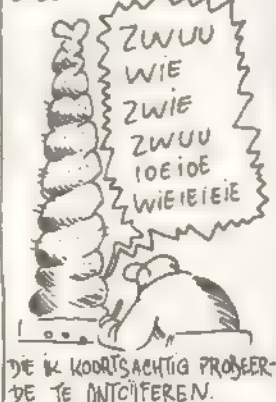 ZWUU
WIE
ZWIE
ZWUU
IOEIOE
WIEIEIEIE
DIE IK KOORTSACHTIG PROBEER-
DE TE ONTCIJFEREN.